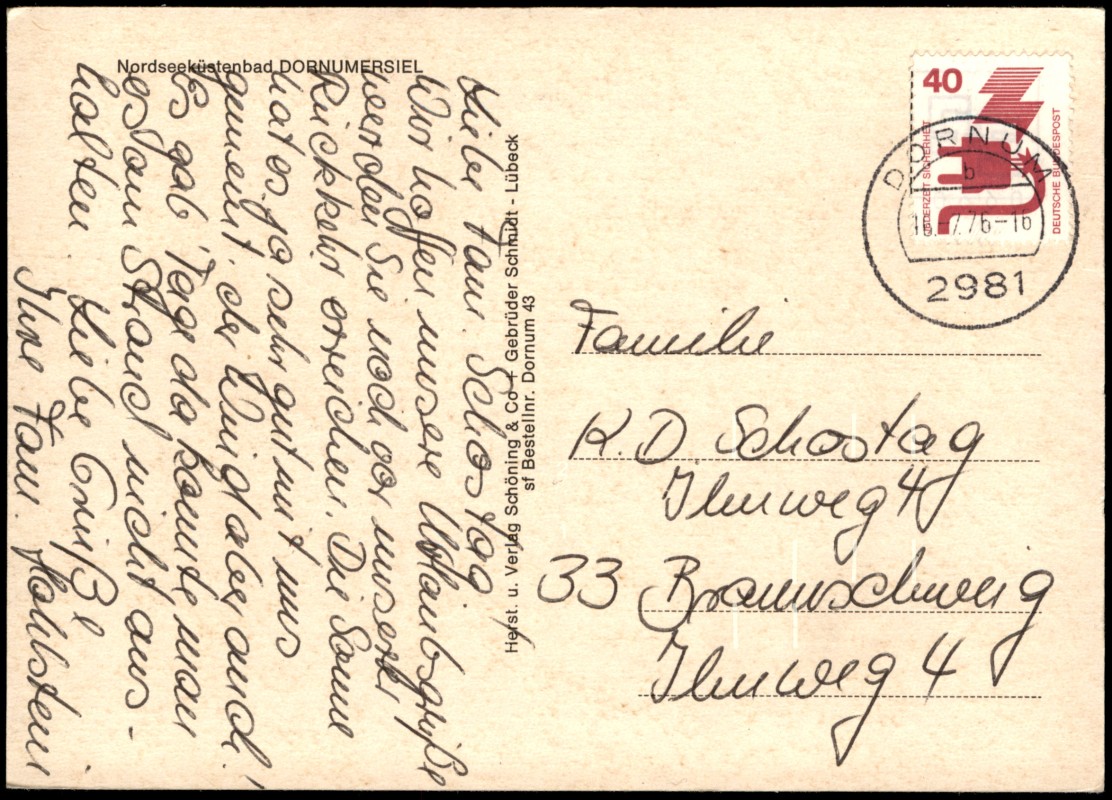 Nordseeküstenbad DORNUMERSIEL
Liebe Fam. Schostag
Wir hoffen unsere Urlaubsgrüße
werden Sie noch vor unserer
Rückkehr erreichen. Die Sonne
hat es ja sehr gut mit uns
gemeint, der Wind aber auch!
Es gab Tage da konnte man
es vom Strand nicht aus-
halten. Liebe Grüße
Ihre Fam. Hohlstein
Herst. u. Verlag Schöning & Co + Gebrüder Schmidt - Lübeck
sf Bestellnr. Dornum 43
40
JEDERZEIT SICHERHEIT
DEUTSCHE BUNDESPOST
DORNUM
b
-7.76-16
2981
Familie
K. D. Schostag
Ilmweg 4
33 Braunschweig
Ilmweg 4